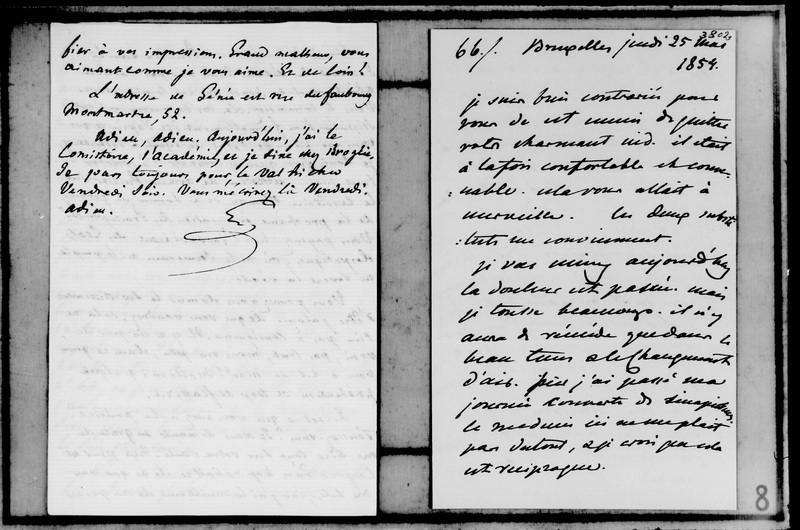 fier à vos impressions. Grand malheur, vous
aimant comme je vous aime. Et de loin !
L'adresse de Génie est rue du faubourg
Montmartre, 52.
Adieu, adieu. Aujourd'hui, j'ai le
Consistoire, l'Académie, et je dine chez Broglie.
Je pars toujours pour le Val Richer
Vendredi soir. Vous m'écrirez là Vendredi.
Adieu.
3802
66/. Bruxelles jeudi 25 Mai
1854.
je suis bien contrariée pour
vous de cet ennui de quitter
votre charmant nid. il était
à la fois confortable et conve-
:nable. cela vous allait à
merveille. les deux substi
:tuts me conviennent.
je vais mieux aujourd'huy
la douleur est passée. mais
je tousse beaucoup. il n'y
aura de remède que dans le
beau tems & le changement
d'air. hier j'ai passé ma
journée couverte de sinapismes.
le medecin ici ne me plait
pas du tout, & je crois que cela
est reciproque.
8